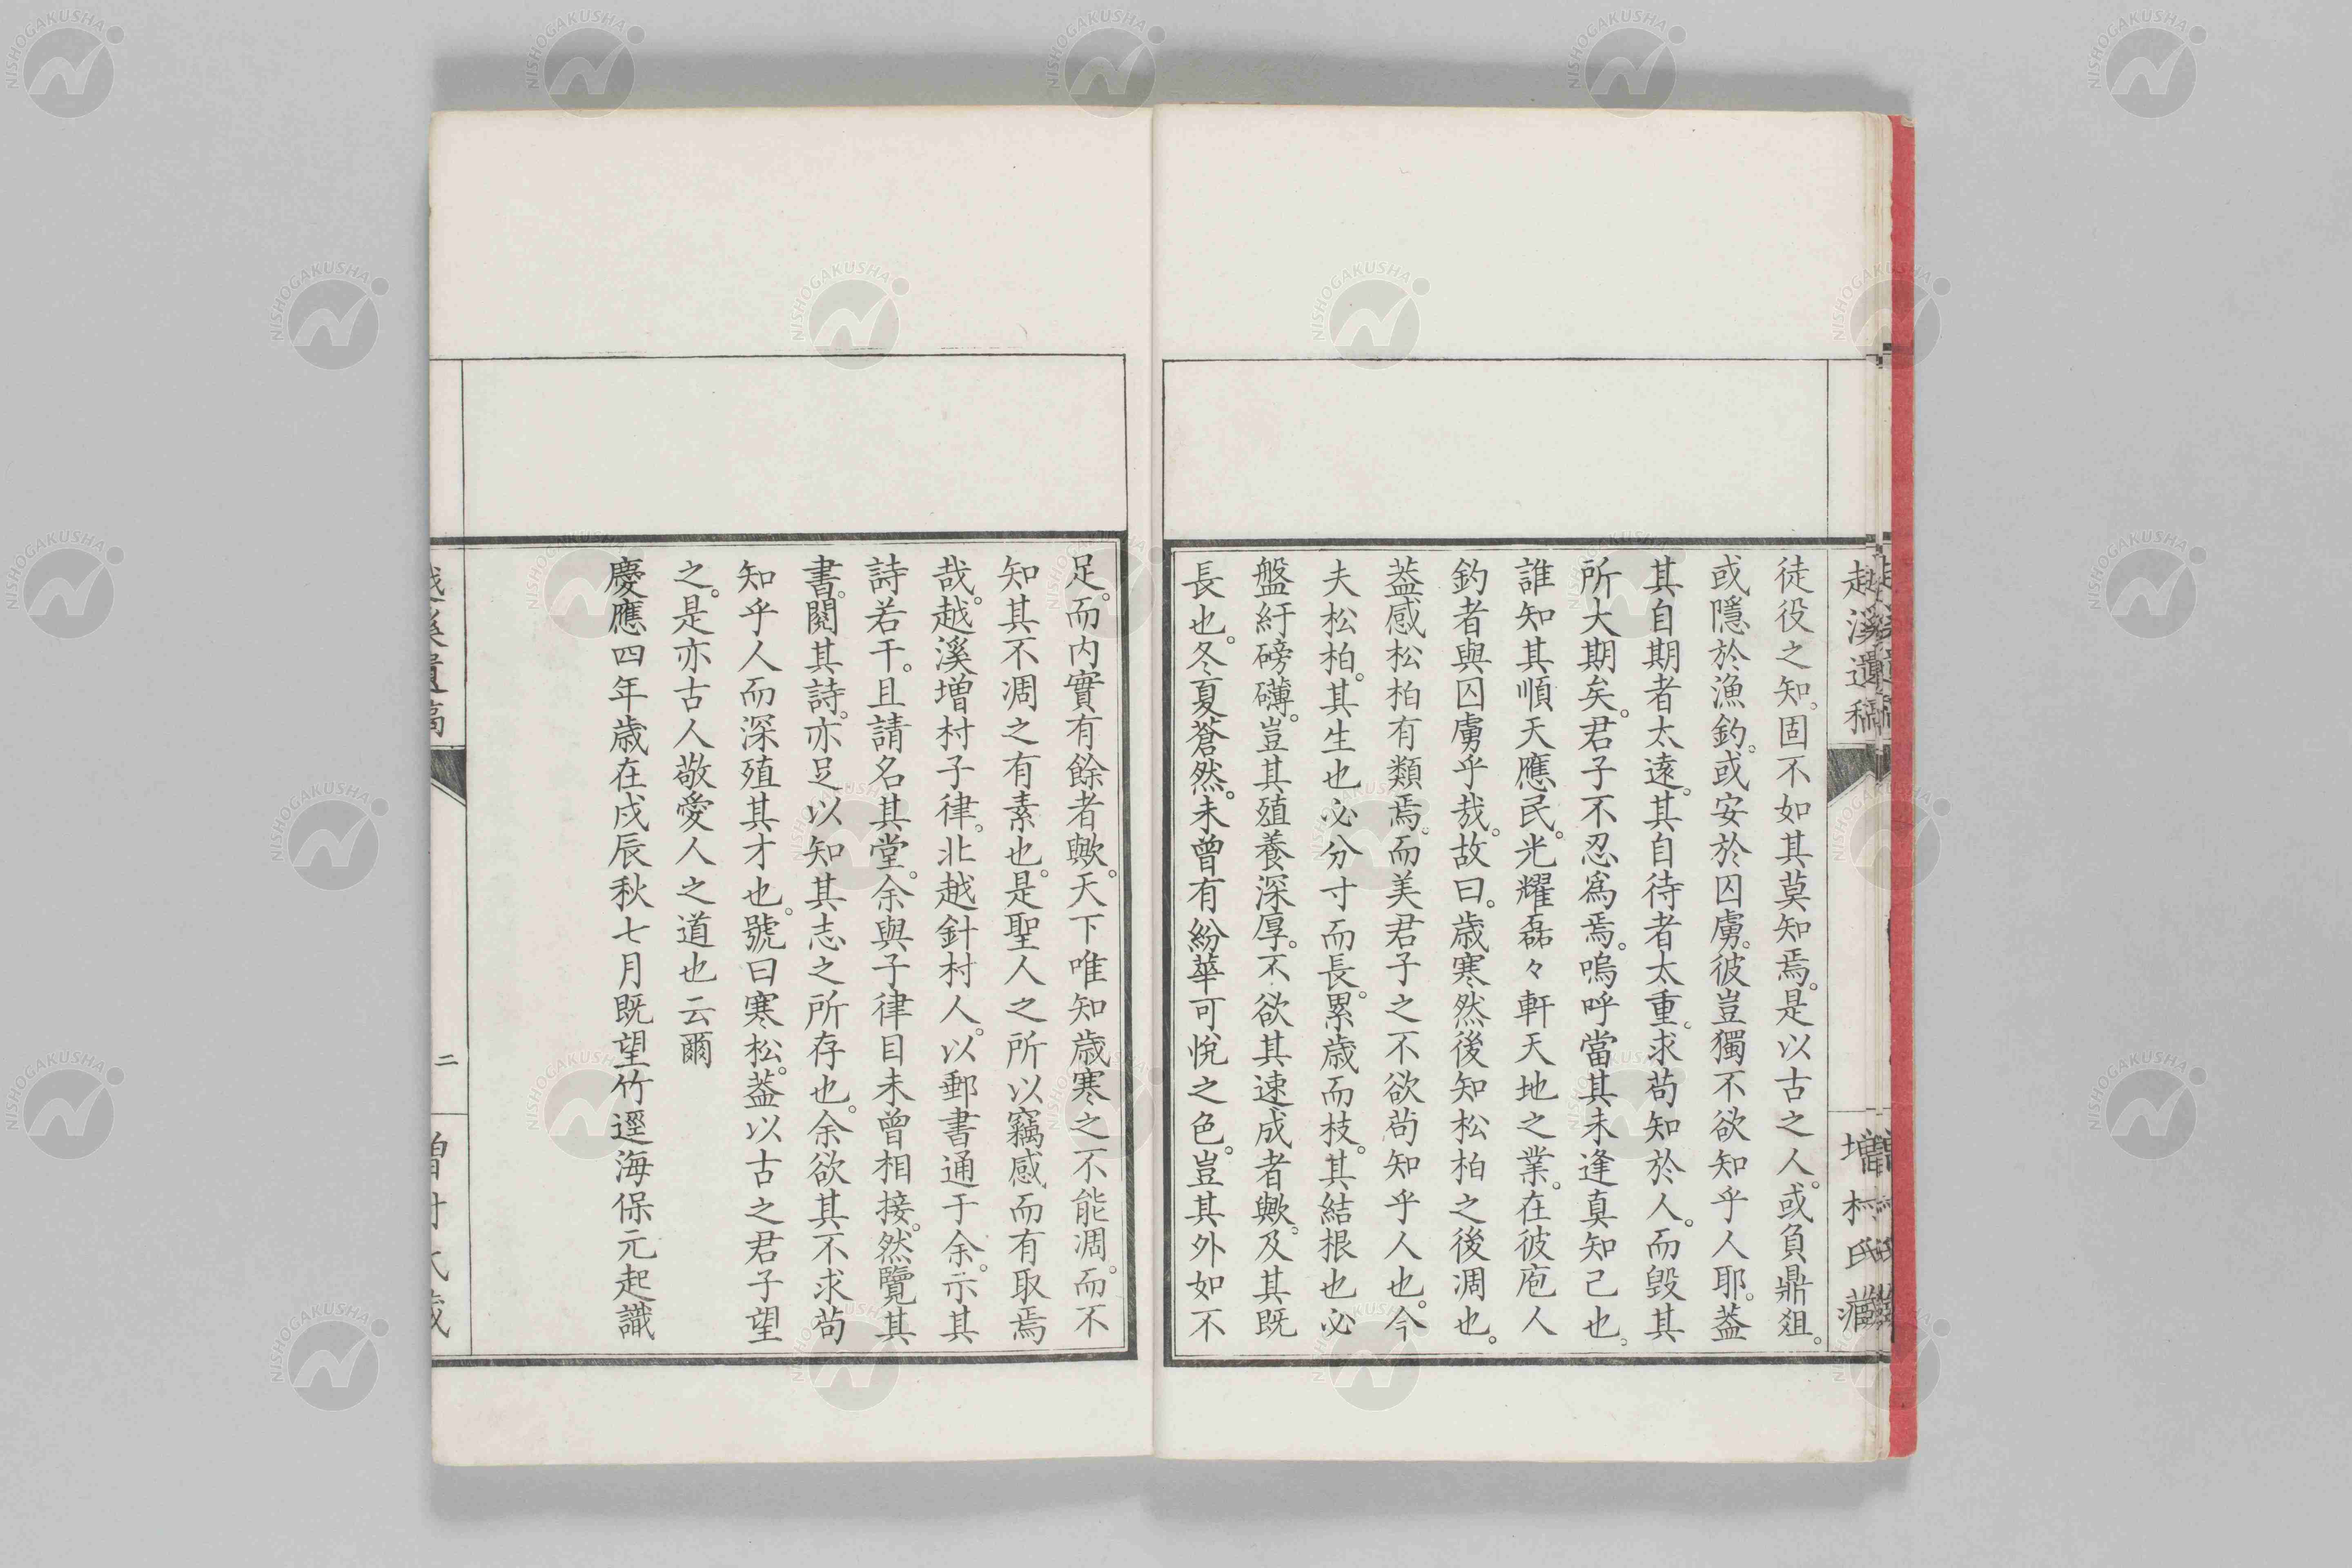 越溪遺稿
增村氏藏
徒役之知。固不如其莫知焉。是以古之人。或負鼎爼。
或隱於漁釣。或安於囚虜。彼豈獨不欲知乎人耶。葢
其自期者太遠。其自待者太重。求苟知於人。而毀其
所大期矣。君子不忍爲焉。嗚呼當其未逢真知己也。
誰知其順天應民。光耀磊々軒天地之業。在彼庖人
釣者與囚虜乎哉。故曰。歲寒然後知松柏之後凋也。
葢感松柏有類焉。而美君子之不欲苟知乎人也。今
夫松柏。其生也必分寸而長。累歲而枝。其結根也必
盤紆磅礴。豈其殖養深厚。不欲其速成者歟。及其既
長也。冬夏蒼然。未曾有紛華可悅之色。豈其外如不
足。而内實有餘者歟。天下唯知歲寒之不能凋。而不
知其不凋之有素也。是聖人之所以竊感而有取焉
哉。越溪增村子律。北越針村人。以郵書通于余。示其
詩若干。且請名其堂。余與子律目未曾相接。然覽其
書。閱其詩。亦足以知其志之所存也。余欲其不求苟
知乎人而深殖其才也。號曰寒松。葢以古之君子望
之。是亦古人敬愛人之道也云爾
慶應四年歲在戊辰秋七月既望竹逕海保元起識
越溪遺稿
二
增村氏藏
NISHOGAKUSHA